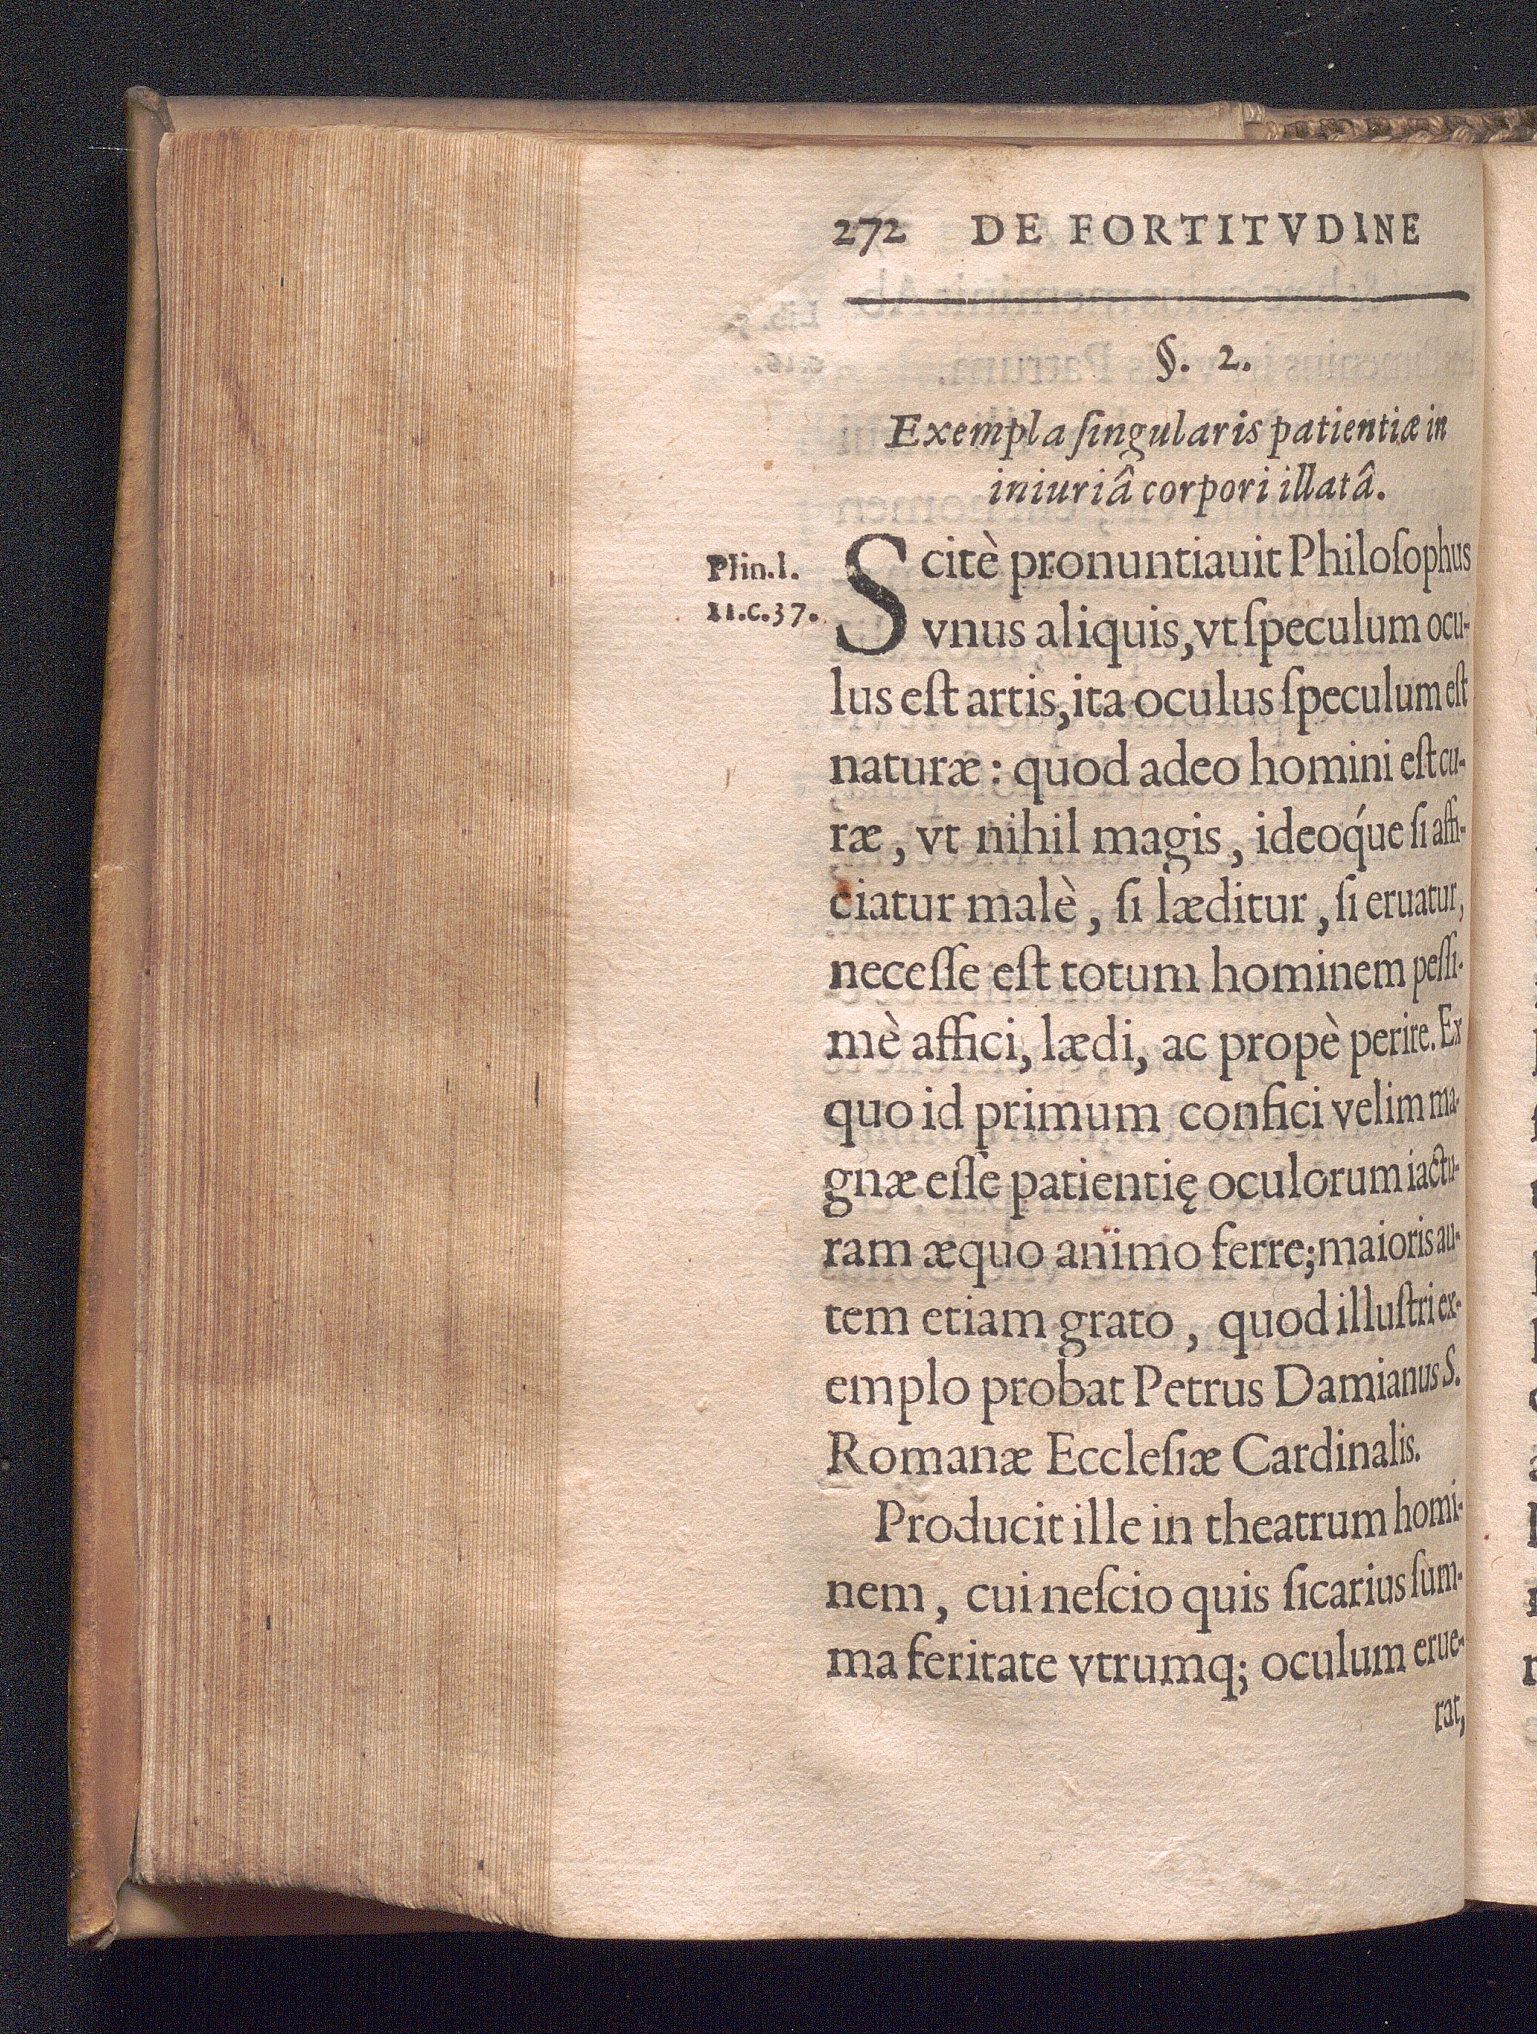 272 DE FORTITVDINE
§. 2.
Exempla ſingularis patientiæ in
iniuriâ corpori illatâ.
Plin.l.
11.c.37.
Scitè pronuntiauit Philoſophus
vnus aliquis, vt ſpeculum ocu-
lus eſt artis, ita oculus ſpeculum eſt
naturæ: quod adeo homini eſt cu-
ræ, vt nihil magis, ideoq́ue ſi affi-
ciatur malè, ſi læditur, ſi eruatur,
neceſſe eſt totum hominem peſſi-
mè affici, lædi, ac propè perire. Ex
quo id primum confici velim ma-
gnæ eſſe patientię oculorum iactu-
ram æquo animo ferre; maioris au-
tem etiam grato, quod illuſtri ex-
emplo probat Petrus Damianus S.
Romanæ Eccleſiæ Cardinalis.
Producit ille in theatrum homi-
nem, cui neſcio quis ſicarius ſum-
ma feritate vtrumq; oculum erue-
rat,